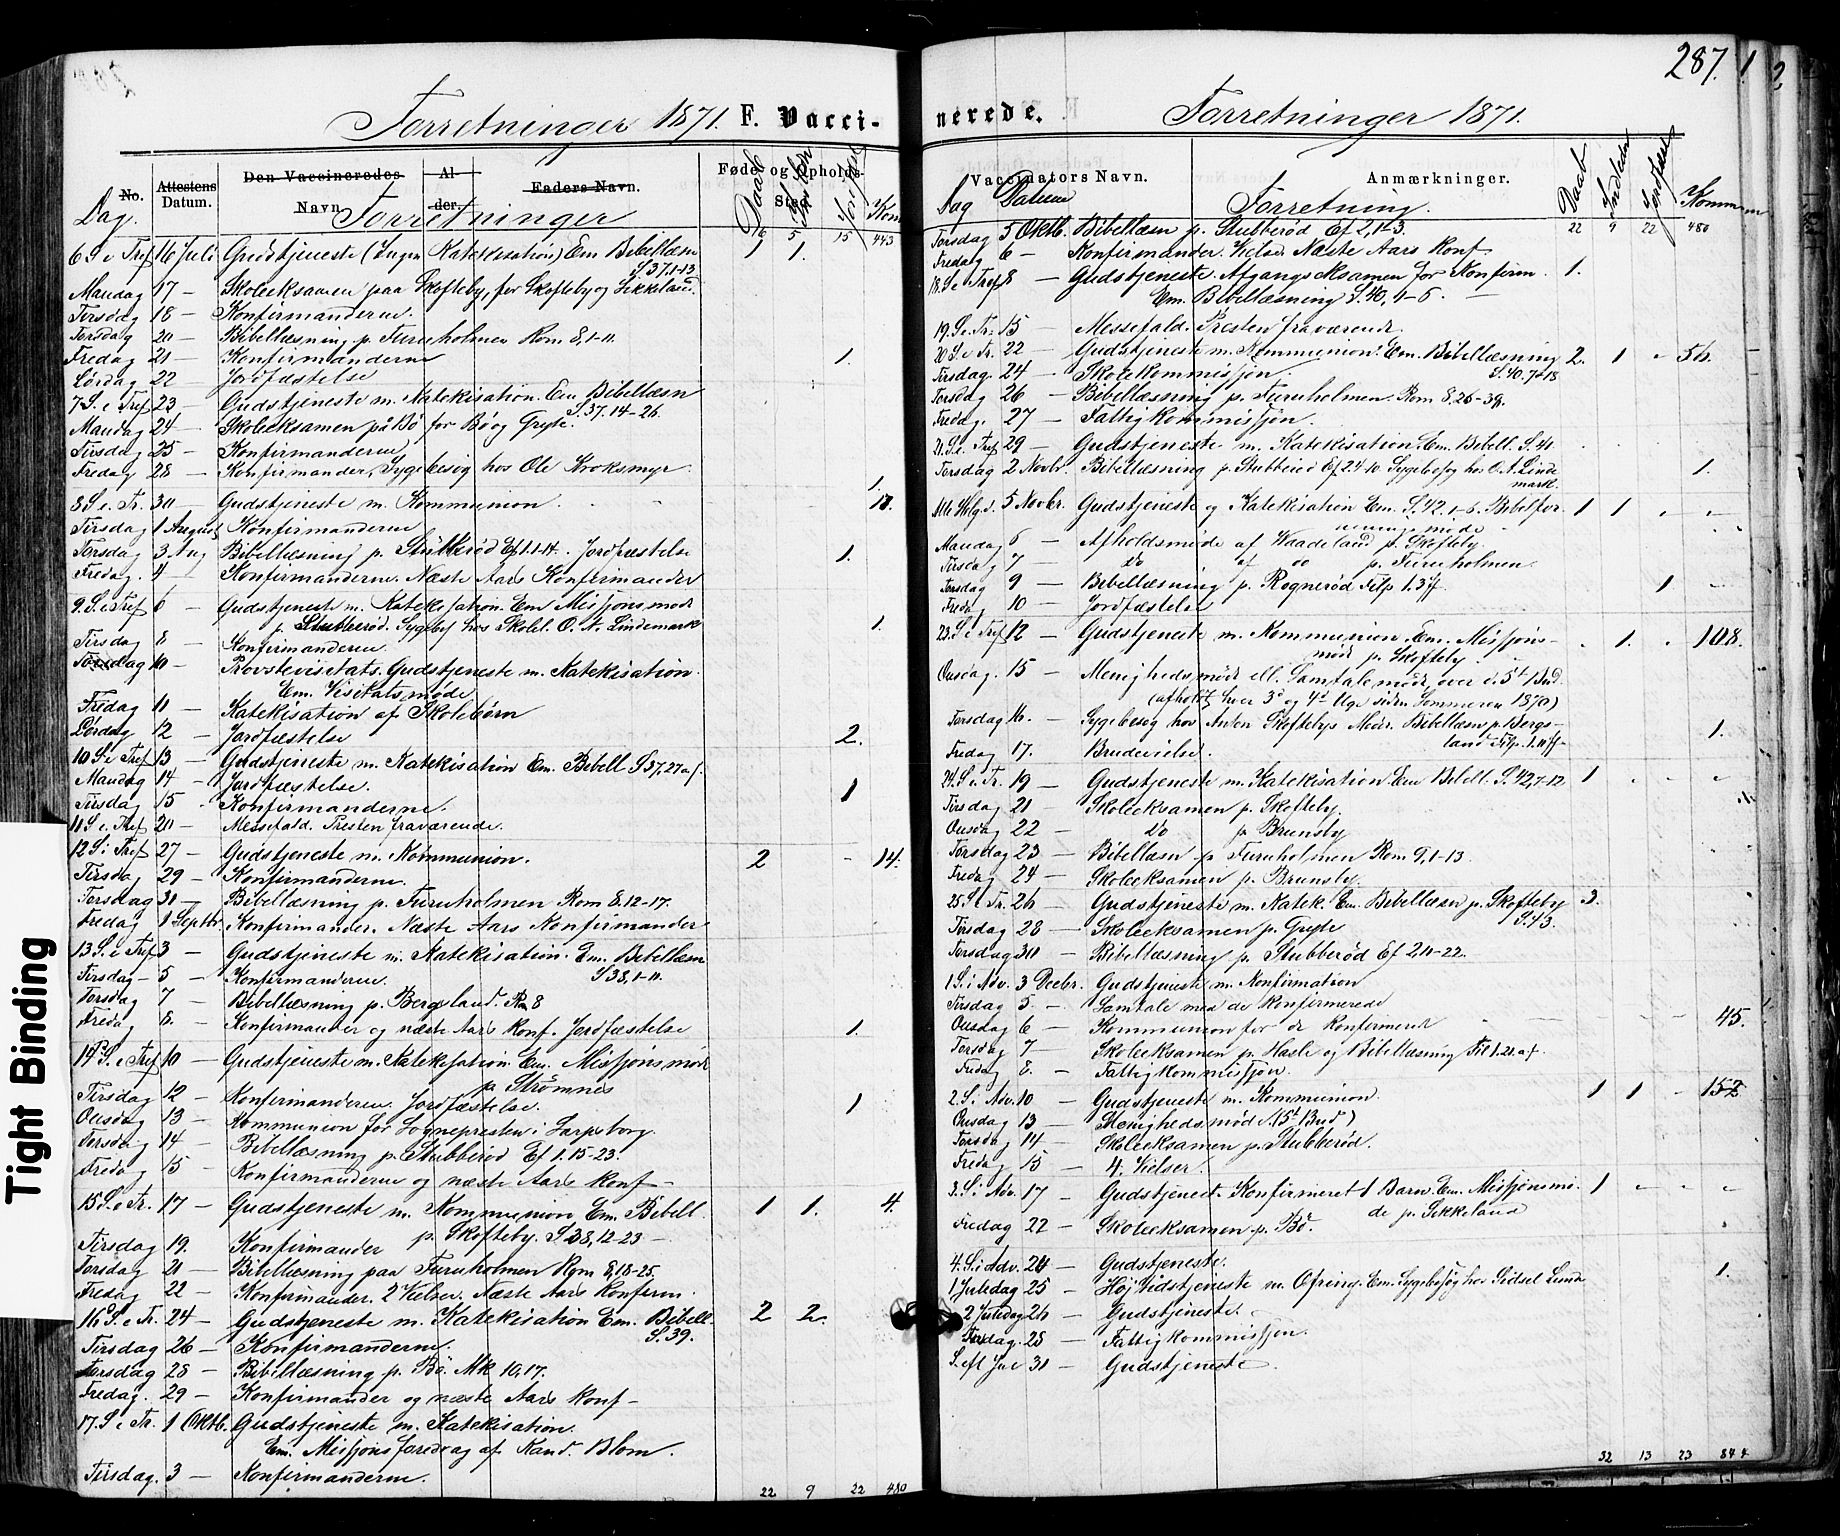 287.
Forretninger 1871. F. Vacci-
No. Attestens Datum. Den Vaccineredes Navn. Alder. Faders Navn. Føde- og Opholds-Sted.
Dag. Forretninger Daab Jordfæst Kom
16 5 15 443
6 S e Tref 16 Juli Gudstjeneste (Ingen Katekisation) Em Bibellæsn 1 1.
S 37.1-13
Mandag 17 — Skoleeksamen paa Skofteby, for Skofteby og Sikkeland.
Tirsdag 18 — Konfirmanderne.
Torsdag 20 — Bibellæsning p. Furuholmen Rom 8,1-11.
Fredag 21 — Konfirmanderne
Lørdag 22 — Jordfæstelse 1.
7 S. e Tref 23 — Gudstjeneste m. Katekisation. Em Bibellæsn
S. 37. 14-26.
Mandag 24 — Skoleeksamen på Bø for Bø og Gryte.
Tirsdag 25 — Konfirmanderne
Fredag 28 — Konfirmander, Sygebesøg hos Ole Kroksmyr 1.
8 S e. Tr. 30 — Gudstjeneste m. Kommunion. 18.
Tirsdag 1 August Konfirmanderne
Torsdag 3 Aug Bibellæsning p. Stubberød Ef 1.1-14. Jordfæstelse 1.
Fredag. 4 — Konfirmanderne. Næste Aars Konfirmander
9. S e Tref 6 — Gudstjeneste m. Katekisation. Em Missjonsmøde
p. Stubberød. Sygebes hos Skolel. O. A. Lindemark 1.
Tirsdag 8 — Konfirmanderne
Torsdag 10 — Provstevisitats. Gudstjeneste m. Katekisation.
Em. Visitatsmøde
Fredag 11 — Katekisation af Skolebørn
Lørdag 12 — Jordfæstelse 2.
10 S e Tref 13 — Gudstjeneste m. Katekisation Em. Bibell S 37,27 af.
Mandag 14 — Jordfæstelse. 1
Tirsdag 15 — Konfirmanderne.
11 S e. Tref 20 — Messefald. Presten fraværende.
12 S e Tref 27 — Gudstjeneste m. Kommunion. 2 14.
Tirsdag 29 — Konfirmanderne.
Torsdag 31 — Bibellæsning p. Furuholmen Rom 8.12-17.
Fredag 1 Septbr. Konfirmander. Næste Aars Konfirmander
13 S. e Tref 3 — Gudstjeneste m. Katekisation. Em. Bibellæsn
S 38,1-11.
Tirsdag — 5 — Konfirmanderne
Torsdag 7 — Bibellæsning p. Bergsland. Rm 8
Fredag 8. — Konfirmander og næste Aars Konf. Jordfæstelse 1.
14 S. e Tref 10 — Gudstjeneste m. Katekisation. Em. Missjonsmøde
p. Strømnes
Tirsdag 12 — Konfirmanderne. Jordfæstelse. 1
Onsdag 13 — Kommunion for Sognepresten i Sarpsborg.
Torsdag 14 — Bibellæsning p. Stubberød Ef 1. 15-23.
Fredag 15 — Konfirmanderne og næste Aars Konf —
15 S. e Tr. 17 — Gudstjeneste m. Kommunion Em. Bibell. 1 1. 4.
p. Skofteby. S 38,12-23 —
Tirsdag 19. Konfirmander
Torsdag 21 — Bibellæsning paa Furuholmen Rom 8,18-25.
Fredag 22 — Konfirmander. 2 Vielser. Næste Aars Konfirm.
16 S. e Tr. 24 — Gudstjeneste m. Katekisation Em. Bibell 2 2.
S. 39.
Tirsdag 26 — Konfirmanderne.
Torsdag 28 — Bibellæsning p. Bø. Mk 10,17.
Fredag. 29 — Konfirmander og næste Aars Konf —
17. S e Tr. 1 Oktb. Gudstjeneste m. Katekisation.
Em. Missjonsforedrag af Kand. Blom.
Tirsdag. 3 — Konfirmanderne.
22 9 22 480
nerede. Forretninger 1871.
Vaccinators Navn. Anmærkninger.
Dag Datum Forretning. Daab Jordfæst Kommun
22 9 22 480
Torsdag 5 Oktb. Bibellæsn p. Stubberød Ef 2,1-3.
Fredag 6 — Konfirmander. Vielse Næste Aars Konf
18. S e Tref 8 — Gudstjeneste. Afgangseksamen for Konfirm. 1.
Em. Bibellæsning S. 40, 1-6. —
19. S. e Tr. 15 — Messefald. Presten fraværende.
20 S. e Tr. 22 — Gudstjeneste m. Kommunion. Em. Bibellæsning 2. 1 - 56.
S. 40. 7-18
Tirsdag. 24 — Skolekommissjon.
Torsdag 26 — Bibellæsning p. Furuholmen. Rom 8.26-39.
Fredag. 27 — Fattigkommissjon.
21. S. e Tref 29 — Gudstjeneste m. Katekisation. Em. Bibell. S. 41
Torsdag 2 Novbr. Bibellæsning p. Stubberød Ef 2 4-10 Sygebesøg hos O. A. Linde 1.
mark.
Alle Helg. d. 5 Novbr. Gudstjeneste og Katekisation Em. S. 42. 1-6. Bibelfor 1 1 - -
eningsmøde
Mandag 6 — Afholdsmøde af Waadeland p. Skofteby.
Tirsdag 7 — Do af do p. Furuholmen.
Torsdag 9 — Bibellæsning p. Rognerød Filp 1.3 ff. 1
Fredag 10 — Jordfæstelse
23. S. e Tref 12 — Gudstjeneste m. Kommunion. Em. Missjons- 1. 108.
møde p. Skofteby.
Onsdag. 15 — Menighedsmøde ell. Samtalemøde, over d. 5t Bud
(afholdt hver 3d og 4d Uge siden Sommeren 1870)
Torsdag 16. — Sygebesøg hos Anton Skoftebys Moder. Bibellæsn p. Bergs- 1.
land Filp. 1. 11 ff-
Fredag 17. Brudevielse.
24. S. e Tr. 19 — Gudstjeneste m. Katekisation. Em Bibell. S. 42,7-12 1
Tirsdag 21 — Skoleeksamen p. Skofteby.
Onsdag 22 — Do p Brunsby
Torsdag 23 — Bibellæsn p Furuholmen Rom 9,1-13.
Fredag 24 — Skoleeksamen p. Brunsby.
25. S e Tr. 26 — Gudstjeneste m. Katek. Em. Bibellæsn p. Skofteby 3.
S. 43.
Tirsdag 28 — Skoleeksamen p. Gryte
Torsdag 30 — Bibellæsning p. Stubberød Ef 2,11-22.
1 S. i Adv. 3 Decbr. Gudstjeneste m. Konfirmation
Tirsdag 5. — Samtale med de Konfirmerede
Onsdag 6 — Kommunion for de Konfirmerede 45.
Torsdag 7 — Skoleeksamen p. Hasle og Bibellæsning Fil 1.21 af.
Fredag 8. — Fattigkommissjon.
2. S. i Adv. 10 — Gudstjeneste m. Kommunion. 1 1 - 152
Onsdag 13 — Menighedsmøde (5t Bud)
Torsdag 14 — Skoleeksamen p. Stubberød.
Fredag 15 — 4 Vielser.
3. S i Adv. 17 — Gudstjenest. Konfirmeret 1 Barn. Em. Missjonsmø- 1 - - -
de p. Sikkeland
Fredag 22 — Skoleeksamen p. Bø.
4. S. i Adv. 24 — Gudstjeneste.
1 Juledag 25 — Højtidstjeneste m. Ofring. Em. Sygebesøg hos Sidsel Lunde 1.
2 Juledag 26 — Gudstjeneste.
Torsdag. 28 — Fattigkommissjon.
S. eft Jul 31 — Gudstjeneste.
32 13 23 844
Tight Binding